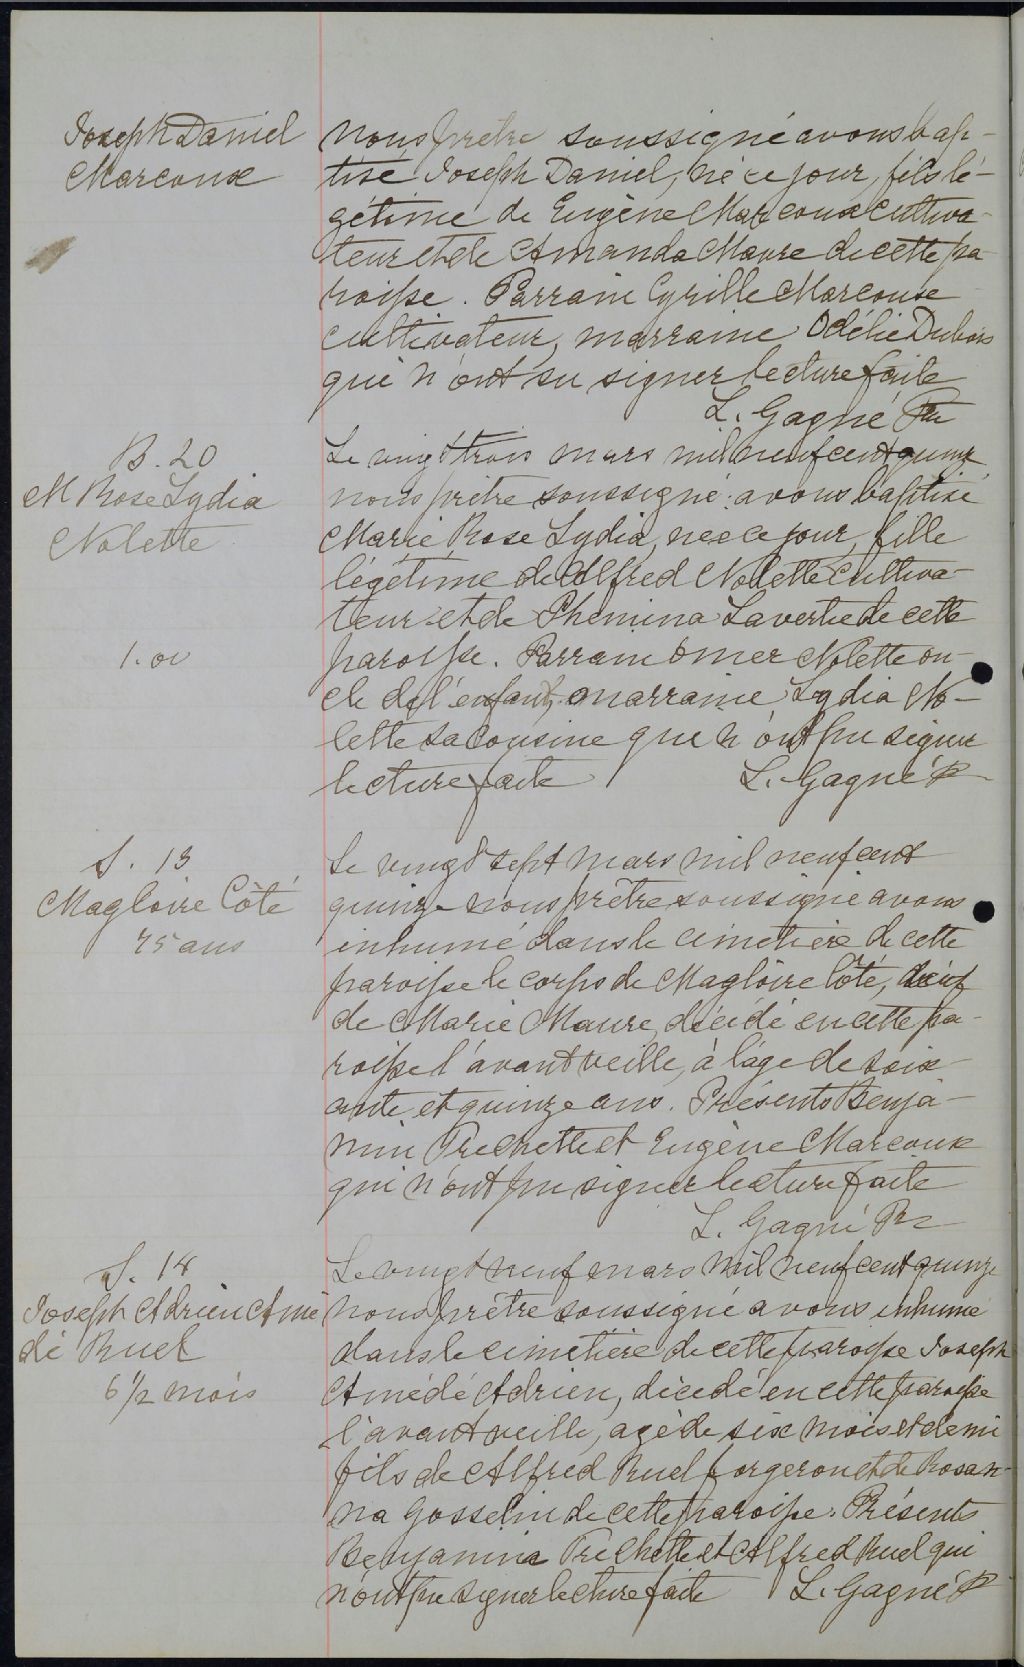 Joseph Daniel
Marcoux
nous prêtre soussigné avons bap-
tisé Joseph Daniel, né ce jour, fils lé-
gétime de Eugène Marcoux cultiva-
teur et de Amanda Maure de cette pa-
roisse. Parrain Cyrille Marcoux
cultivateur, marraine Odélie Dubois
qui n'ont su signer lecture faite
L. Gagné Ptre
B. 20
M Rose Lydia
Nolette
1.00
Le vingt trois mars mil neuf cent quinze
nous prêtre soussigné avons baptisé
Marie Rose Lydia, née ce jour, fille
légétime de Alfred Nolette cultiva-
teur et de Phemina Lavertu de cette
paroisse. Parrain Omer Nolette on-
cle de l'enfant, marraine Lydia No-
lette sa cousine qui n'ont pu signer
lecture faite L. Gagné P
S. 13
Magloire Côté
75 ans
Le vingt sept mars mil neuf cent
quinze nous prêtre soussigné avons
inhumé dans le cimetière de cette
paroisse le corps de Magloire Côté, veuf
de Marie Maure, décédé en cette pa-
roisse l'avant veille, à l'âge de soix-
ante et quinze ans. Présents Benja-
min Frechette et Eugène Marcoux
qui n'ont pu signer lecture faite
L. Gagné Ptre
S. 14
Joseph Adrien Amé
dé Ruel
6 1/2 mois
Le vingt neuf mars mil neuf cent quinze
nous prêtre soussigné avons inhumé
dans le cimetière de cette paroisse Joseph
Amédé Adrien, décédé en cette paroisse
l'avant veille, agé de six mois et demi
fils de Alfred Ruel forgeron et de Rosan-
na Gosselin de cette paroisse. Présents
Benjamin Frechette et Alfred Ruel qui
n'ont pu signer lecture faite L. Gagné P